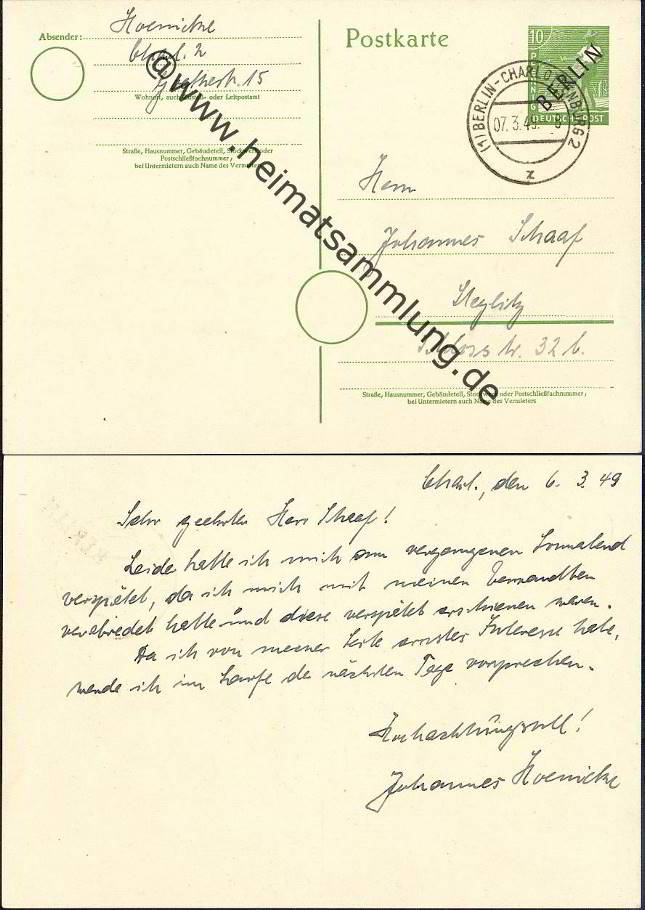 Absender:
Hoenicke
Postkarte
Charl. 2
10
BERLIN
DEUTSCHE POST
(1) BERLIN-CHARLOTTENBURG 2
07.3.49
z
15
Wohnort, auch Zustell- oder Leitpostamt
Straße, Hausnummer, Gebäudeteil, Stockwerk oder
Postschließfachnummer;
bei Untermietern auch Name des Vermieters
@www.heimatsammlung.de
Herrn
Johannes Schaaf
Steglitz
Schlossstr. 32 b.
Straße, Hausnummer, Gebäudeteil, Stockwerk oder Postschließfachnummer;
bei Untermietern auch Name des Vermieters
Charl., den 6. 3. 49
Sehr geehrter Herr Schaaf!
Leider hatte ich mich am vergangenen Sonnabend
verspätet, da ich mich mit meinen Verwandten
verabredet hatte und diese verspätet erschienen waren.
Da ich von meiner Seite ernstes Interesse habe,
werde ich im Laufe der nächsten Tage vorsprechen.
Hochachtungsvoll!
Johannes Hoenicke